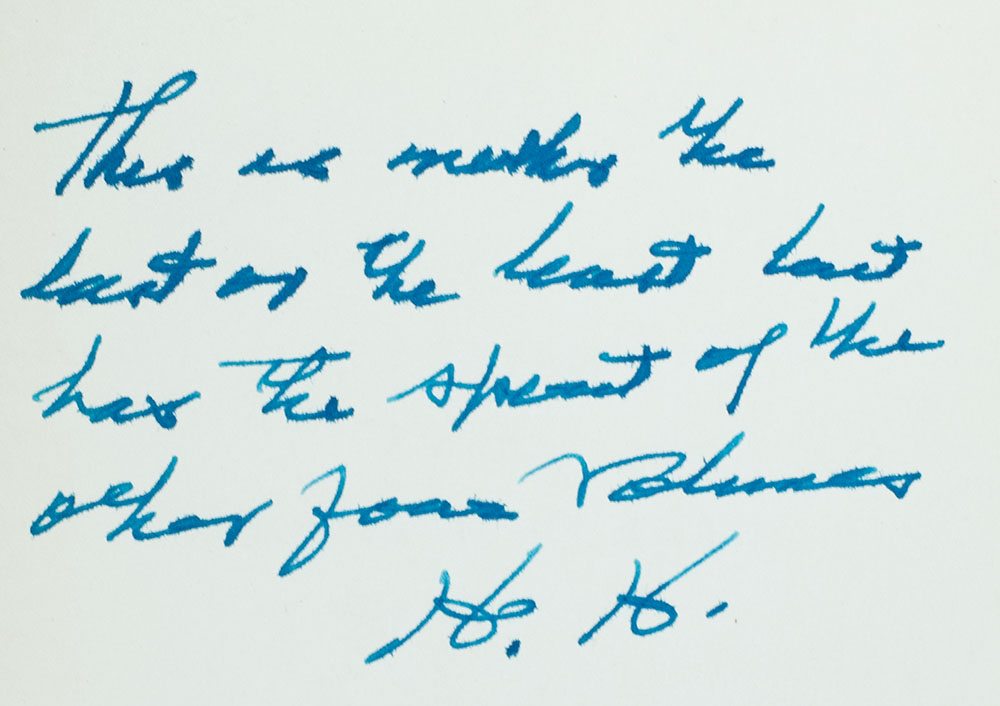 This is neither the
last or the least but
has the spirit of the
other four volumes
H. K.